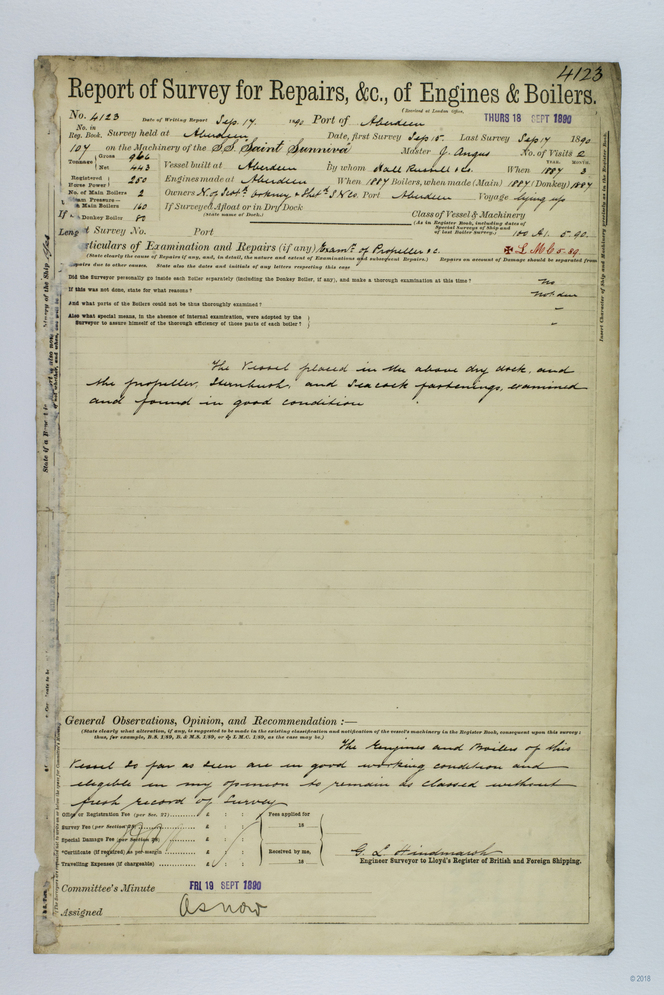 4123
Report of Survey for Repairs, &c., of Engines & Boilers.
(Received at London Office,
No. 4123 Date of Writing Report Sep. 17. 1890 Port of Aberdeen THURS 18 SEPT 1890
No. in Reg. Book. Survey held at Aberdeen Date, first Survey Sep 15. Last Survey Sep 17 1890
107 on the Machinery of the S.S. Saint Sunniva Master J. Angus No. of Visits 2
Tonnage Gross 966 Net 443 Vessel built at Aberdeen By whom Hall Russell & Co. When YEAR. 1887 MONTH. 3
Registered Horse Power 250 Engines made at Aberdeen When 1887 Boilers, when made (Main) 1887 (Donkey) 1887
No. of Main Boilers 2 Owners N. of Scotd. Orkney & Shetd. S N Co. Port Aberdeen Voyage lying up
Steam Pressure—
in Main Boilers 160 If Surveyed Afloat or in Dry Dock
(State name of Dock.)
Donkey Boiler 80 Class of Vessel & Machinery
(As in Register Book, including dates of Special Surveys of Ship and of last Boiler Survey.)
t Survey No. Port 100 A1. 5.90.
rticulars of Examination and Repairs (if any) Examn. of Propeller &c. L M C 5.89.
(State clearly the cause of Repairs if any, and, in detail, the nature and extent of Examinations and subsequent Repairs.) Repairs on account of Damage should be separated from
epairs due to other causes. State also the dates and initials of any letters respecting this case
Did the Surveyor personally go inside each Boiler separately (including the Donkey Boiler, if any), and make a thorough examination at this time? No
If this was not done, state for what reasons? not due
And what parts of the Boilers could not be thus thoroughly examined? "
Also what special means, in the absence of internal examination, were adopted by the
Surveyor to assure himself of the thorough efficiency of those parts of each boiler? "
The Vessel placed in the above dry dock, and
the propeller, Sternbush, and Seacock fastenings, examined
and found in good condition
General Observations, Opinion, and Recommendation :—
(State clearly what alteration, if any, is suggested to be made in the existing classification and notification of the vessel's machinery in the Register Book, consequent upon this survey;
thus, for example, B.S. 1/89, B. & M.S. 1/89, or L.M.C. 1/89, as the case may be.)
The Engines and Boilers of this
Vessel so far as seen are in good working condition and
eligible in my opinion to remain as classed without
fresh record of Survey
Office or Registration Fee (per Sec. VI) £ : : Fees applied for
Survey Fee (per Section £ : : 18
Special Damage Fee (per Section £ : :
*Certificate (if required) as per margin £ : : Received by me,
Travelling Expenses (if chargeable) £ : : 18
G. L. Hindmarsh
Engineer Surveyor to Lloyd's Register of British and Foreign Shipping.
Committee's Minute FRI 19 SEPT 1890
Assigned As now
Insert Character of Ship and Machinery precisely as in the Register Book.
© 2018